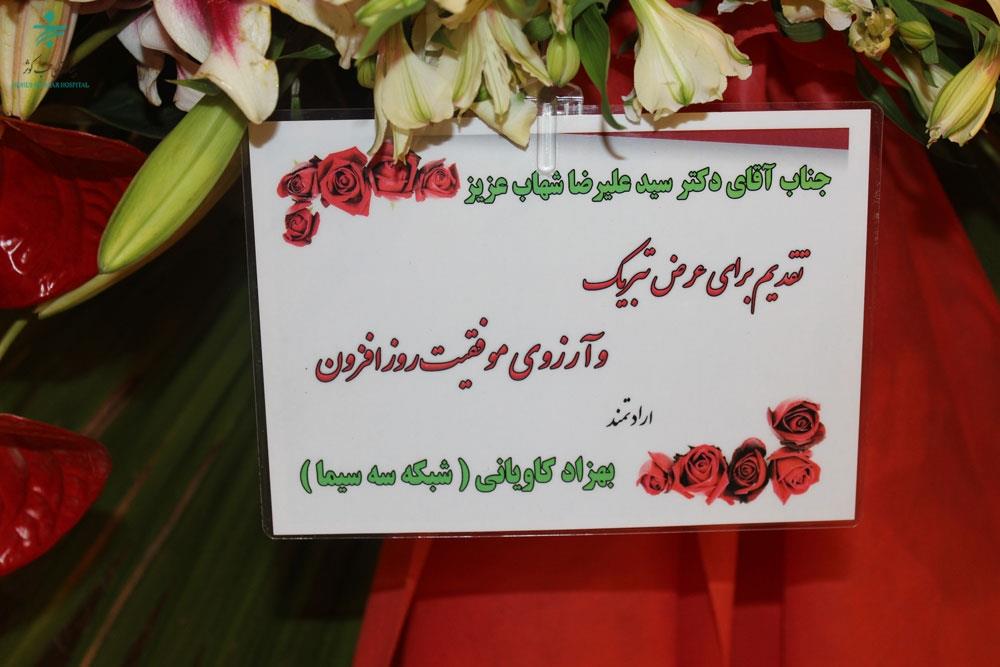 جناب آقای دکتر سید علیرضا شهاب عزیز
تقدیم برای عرض تبریک
و آرزوی موفقیت روز افزون
ارادتمند
بهزاد کاویانی ( شبکه سه سیما )
HOSPITAL